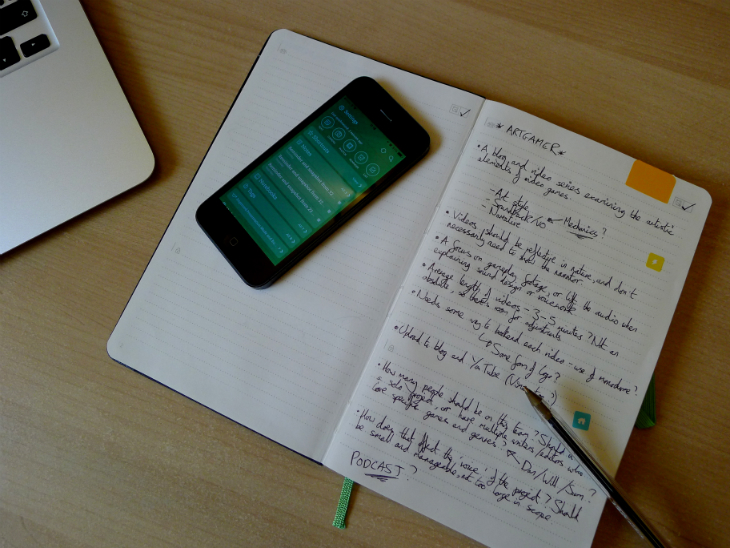 *ARTGAMER*
• A blog and video series examining the artistic
elements of video games.
- Art style
- Soundtrack ← Mechanics?
- Narrative
• Videos should be reflective in nature, and don't
necessarily need to the narrator
• A focus on gameplay footage, or the audio when
explaining sound design or voicework
• Average length of videos - 3-5 minutes? Not an
absolute, so room for adjustments
• Needs some way to each video - use of ?
↳ Some form of logo?
• Upload to blog and YouTube
• How many people should be on this team? Should it be
a solo project, or have multiple writers/editors who
love specific games and genres? ← Dan/Will/Sam?
• How does that affect the 'voice' of the project? Should
be small and manageable, not too large in scope
PODCAST?